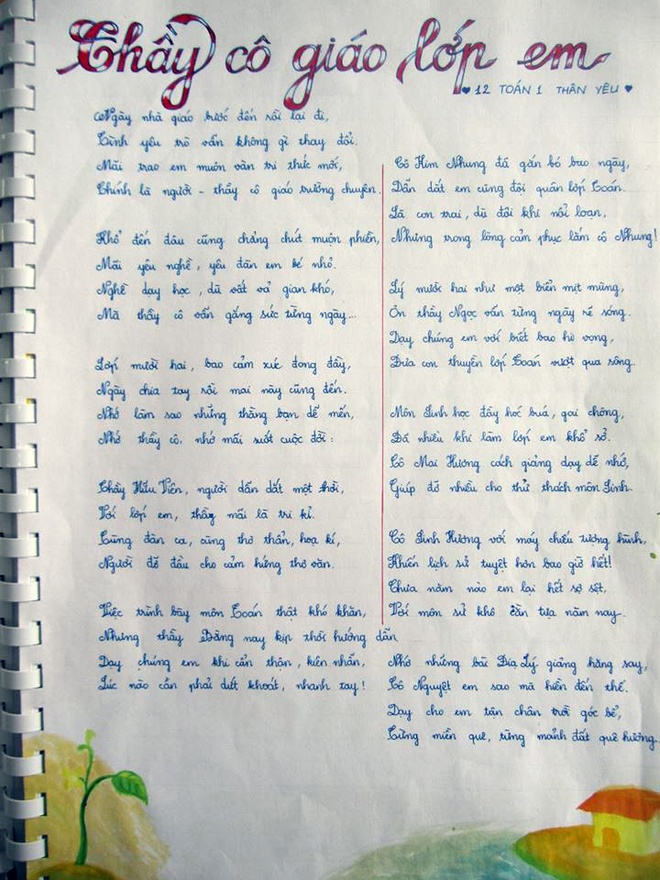 Thầy cô giáo lớp em
♥ 12 TOÁN 1 THÂN YÊU ♥
Ngày nhà giáo trước đến rồi lại đi,
Tình yêu trò vẫn không gì thay đổi.
Mãi trao em muôn vàn tri thức mới,
Chính là người - thầy cô giáo trường chuyên.
Khổ đến đâu cũng chẳng chút muộn phiền,
Mãi yêu nghề, yêu đàn em bé nhỏ.
Nghề dạy học, dù vất vả gian khó,
Mà thầy cô vẫn gắng sức từng ngày...
Lớp mười hai, bao cảm xúc đong đầy,
Ngày chia tay rồi mai này cũng đến.
Nhớ làm sao những thằng bạn dễ mến,
Nhớ thầy cô, nhớ mãi suốt cuộc đời:
Thầy Hữu Viên, người dẫn dắt một thời,
Với lớp em, thầy mãi là tri kỉ.
Cũng đàn ca, cũng thơ thẩn, hoạ kí,
Người để đầu cho cảm hứng thơ văn.
Việc trình bày môn Toán thật khó khăn,
Nhưng thầy Đằng nay kịp thời hướng dẫn
Dạy chúng em khi cẩn thận, kiên nhẫn,
Lúc nào cần phải dứt khoát, nhanh tay!
Cô Kim Nhung đã gắn bó bao ngày,
Dẫn dắt em cùng đội quân lớp Toán.
Là con trai, dù đôi khi nổi loạn,
Nhưng trong lòng cảm phục lắm cô Nhung!
Lý mười hai như một biển mịt mùng,
Ơn thầy Ngọc vẫn từng ngày rẽ sóng.
Dạy chúng em với biết bao hi vọng,
Đưa con thuyền lớp Toán vượt qua sông.
Môn Sinh học đầy hóc búa, gai chông,
Đã nhiều khi làm lớp em khổ sở.
Cô Mai Hương cách giảng dạy dễ nhớ,
Giúp đỡ nhiều cho thử thách môn Sinh.
Cô Linh Hương với máy chiếu tường hình,
Khiến lịch sử tuyệt hơn bao giờ hết!
Chưa năm nào em lại hết sợ sệt,
Với môn sử khô cằn tựa năm nay.
Nhớ những bài Địa Lý giảng hăng say,
Cô Nguyệt em sao mà hiền đến thế.
Dạy cho em tận chân trời góc bể,
Từng miền quê, từng mảnh đất quê hương.